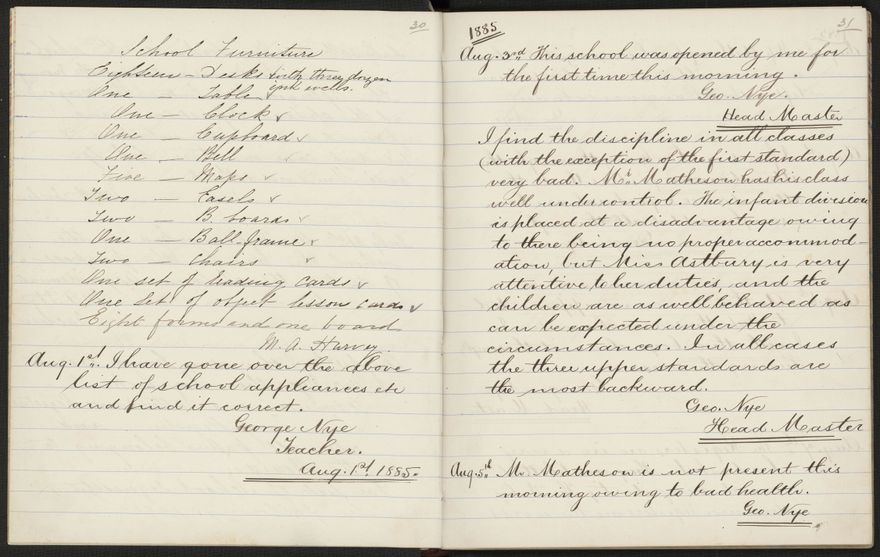 30
School Furniture
Eighteen – Desks with three dozen
ink wells.
One – Table
One – Clock ✓
One – Cupboard ✓
One – Bell
Five – Maps ✓
Two – Easels ✓
Two – B. boards ✓
One – Ball frame ✓
Two – Chairs ✓
One set of Reading Cards ✓
One Set of object lesson cards ✓
Eight forms and one board
M. A. Harvey
Aug. 1st. I have gone over the above
list of school appliances etc
and find it correct.
George Nye
Teacher.
Aug. 1st. 1885.
31
1885
Aug. 3rd This school was opened by me for
the first time this morning.
Geo. Nye.
Head Master
I find the discipline in all classes
(with the exception of the first standard)
very bad. Mr. Matheson has his class
well under control. The infant division
is placed at a disadvantage owing
to there being no proper accommod-
ation, but Miss Astbury is very
attentive to her duties, and the
children are as well behaved as
can be expected under the
circumstances. In all cases
the three upper standards are
the most backward.
Geo. Nye
Head Master
Aug. 5th Mr. Matheson is not present this
morning owing to bad health.
Geo. Nye